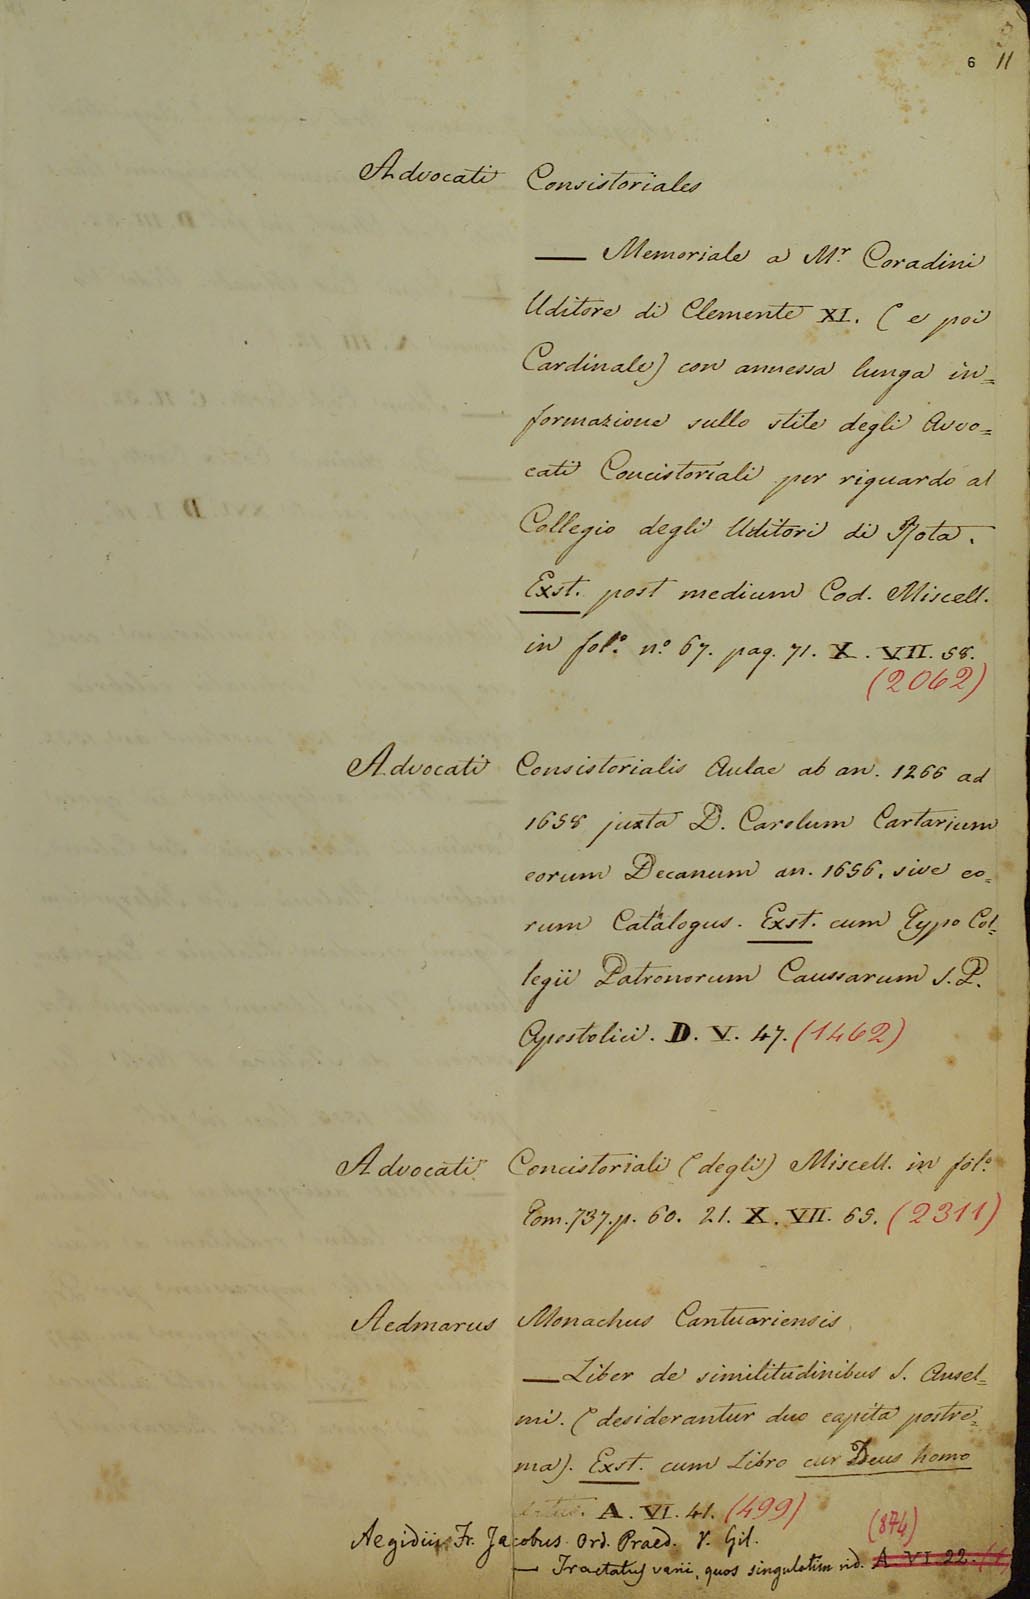 6 11
Advocati Consistoriales
— Memoriale a Mr. Coradini
Uditore di Clemente XI. (e poi
Cardinale) con annessa lunga in=
formazione sullo stile degli Avvo=
cati Concistoriali per riguardo al
Collegio degli Uditori di Rota.
Exst. post medium Cod. Miscell.
in fol.º n.º 67. pag. 71. X. VII. 58.
(2062)
Advocati Consistorialis Aulae ab an. 1266 ad
1658 juxta D. Carolum Cartarium
eorum Decanum an. 1656. sive eo=
rum Catalogus. Exst. cum Typo Col=
legii Patronorum Caussarum S. P.
Apostolici. D. V. 47. (1462)
Advocati Concistoriali (degli) Miscell. in fol.º
Tom. 737. p. 60. 21. X. VII. 65. (2311)
Aedmarus Monachus Cantuariensis
— Liber de similitudinibus S. Ansel=
mi. (desiderantur duo capita postre=
ma). Exst. cum Libro cur Deus homo
A. VI. 41. (499)
(874)
Aegidii Fr. Jacobus Ord. Praed. V. Gil.
— Tractatus varii, quos singulatim vid. A. VI. 22.